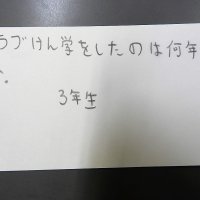 うづけん学をしたのは何年
。
3年生